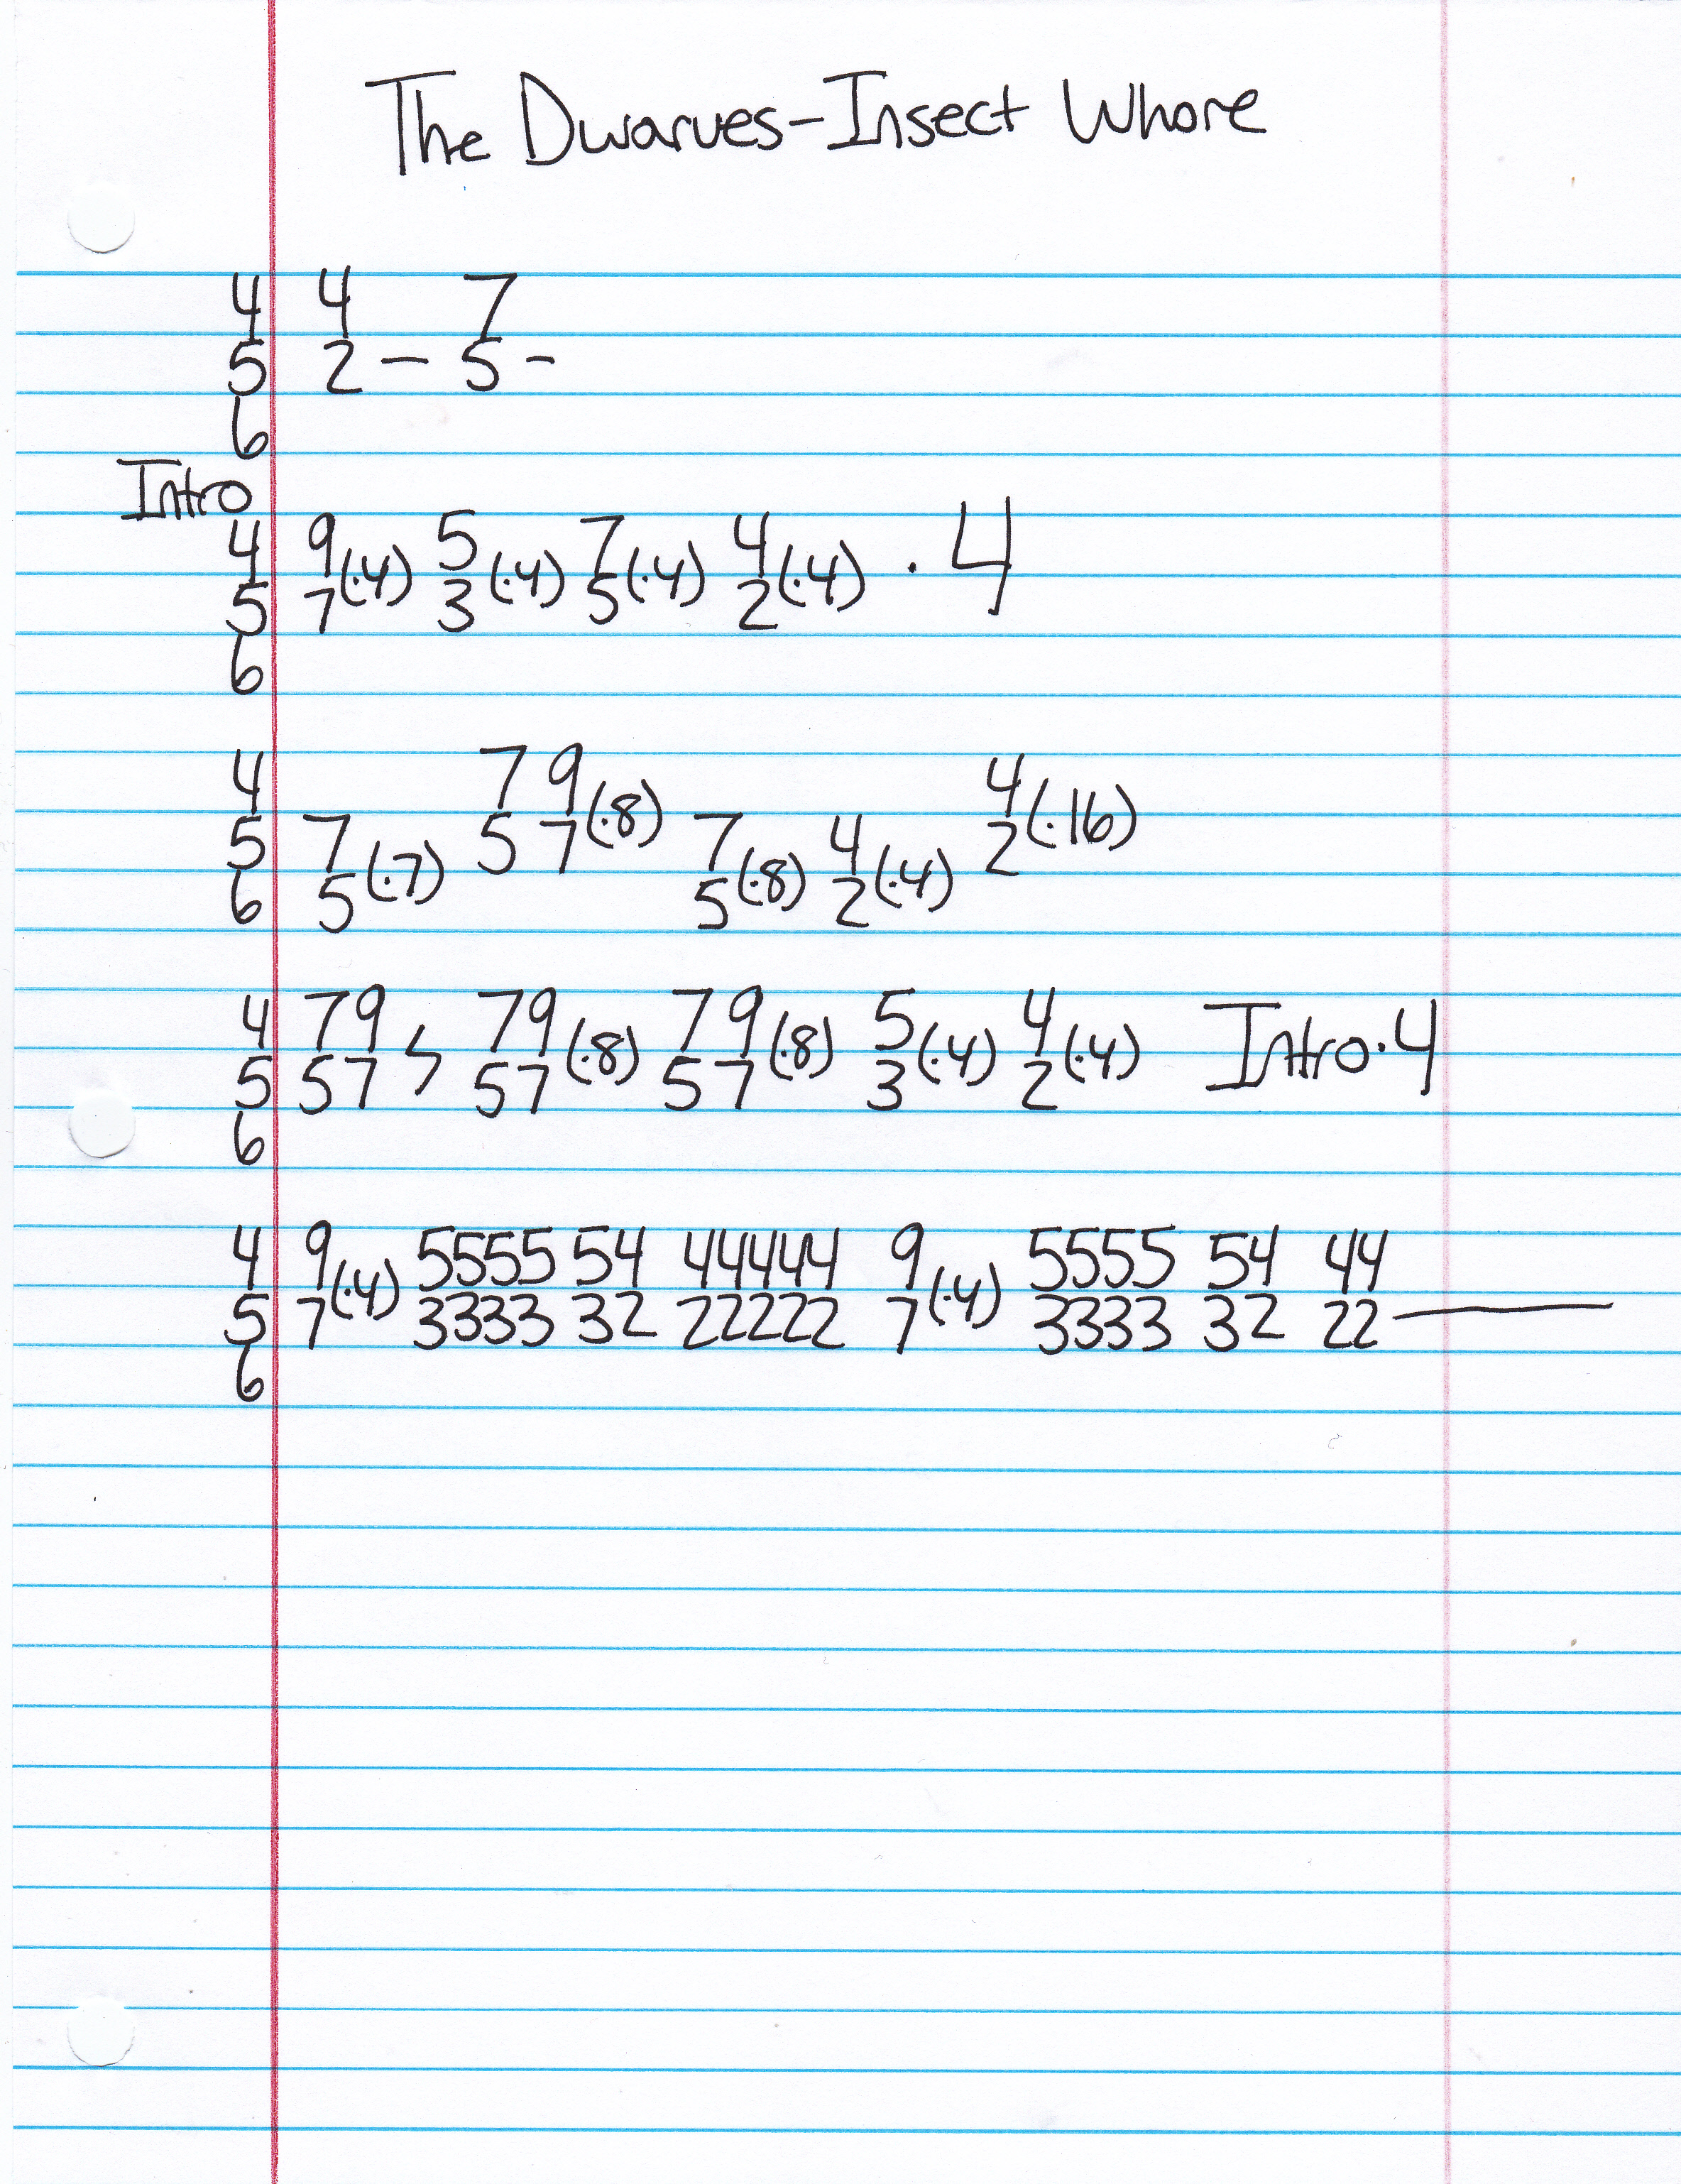 The Dwarves-Insect Whore
4 4 7
5 2 — 5 -
6
Intro
4 9 5 7 4
5 7 (·4) 3 (·4) 5 (·4) 2 (·4) · 4
6
4 7 9 4
5 7 5 7 (·8) 7 4 2 (·16)
6 5 (·7) 5 (·8) 2 (·4)
4 79 79 79 5 4
5 57 57 (·8) 57 (·8) 3 (·4) 2 (·4) Intro·4
6
4 9 5555 54 44444 9 5555 54 44
5 7 (·4) 3333 32 22222 7 (·4) 3333 32 22 —
6